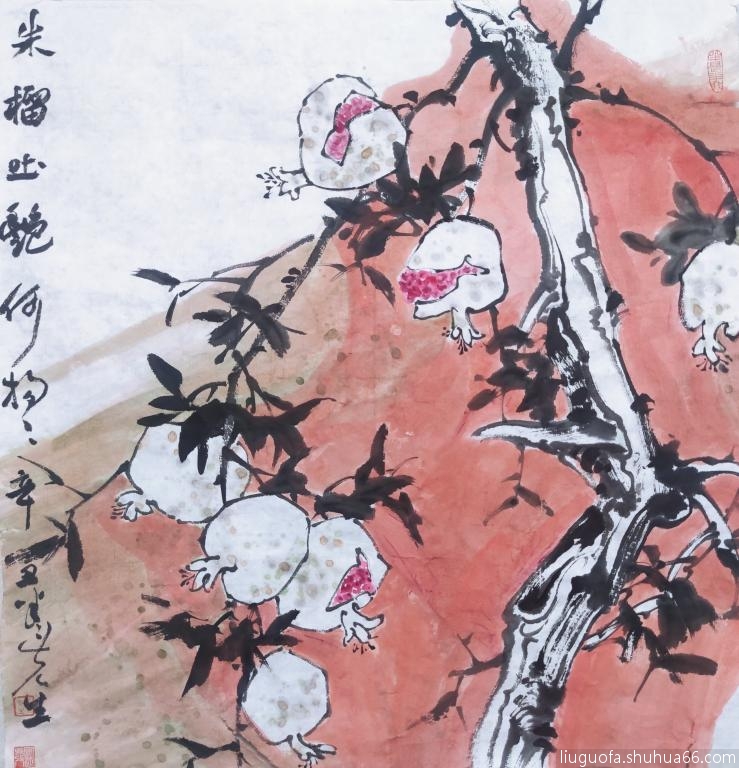 朱榴吐艷何物々辛丑
生
liuguofa.shuhua66.com